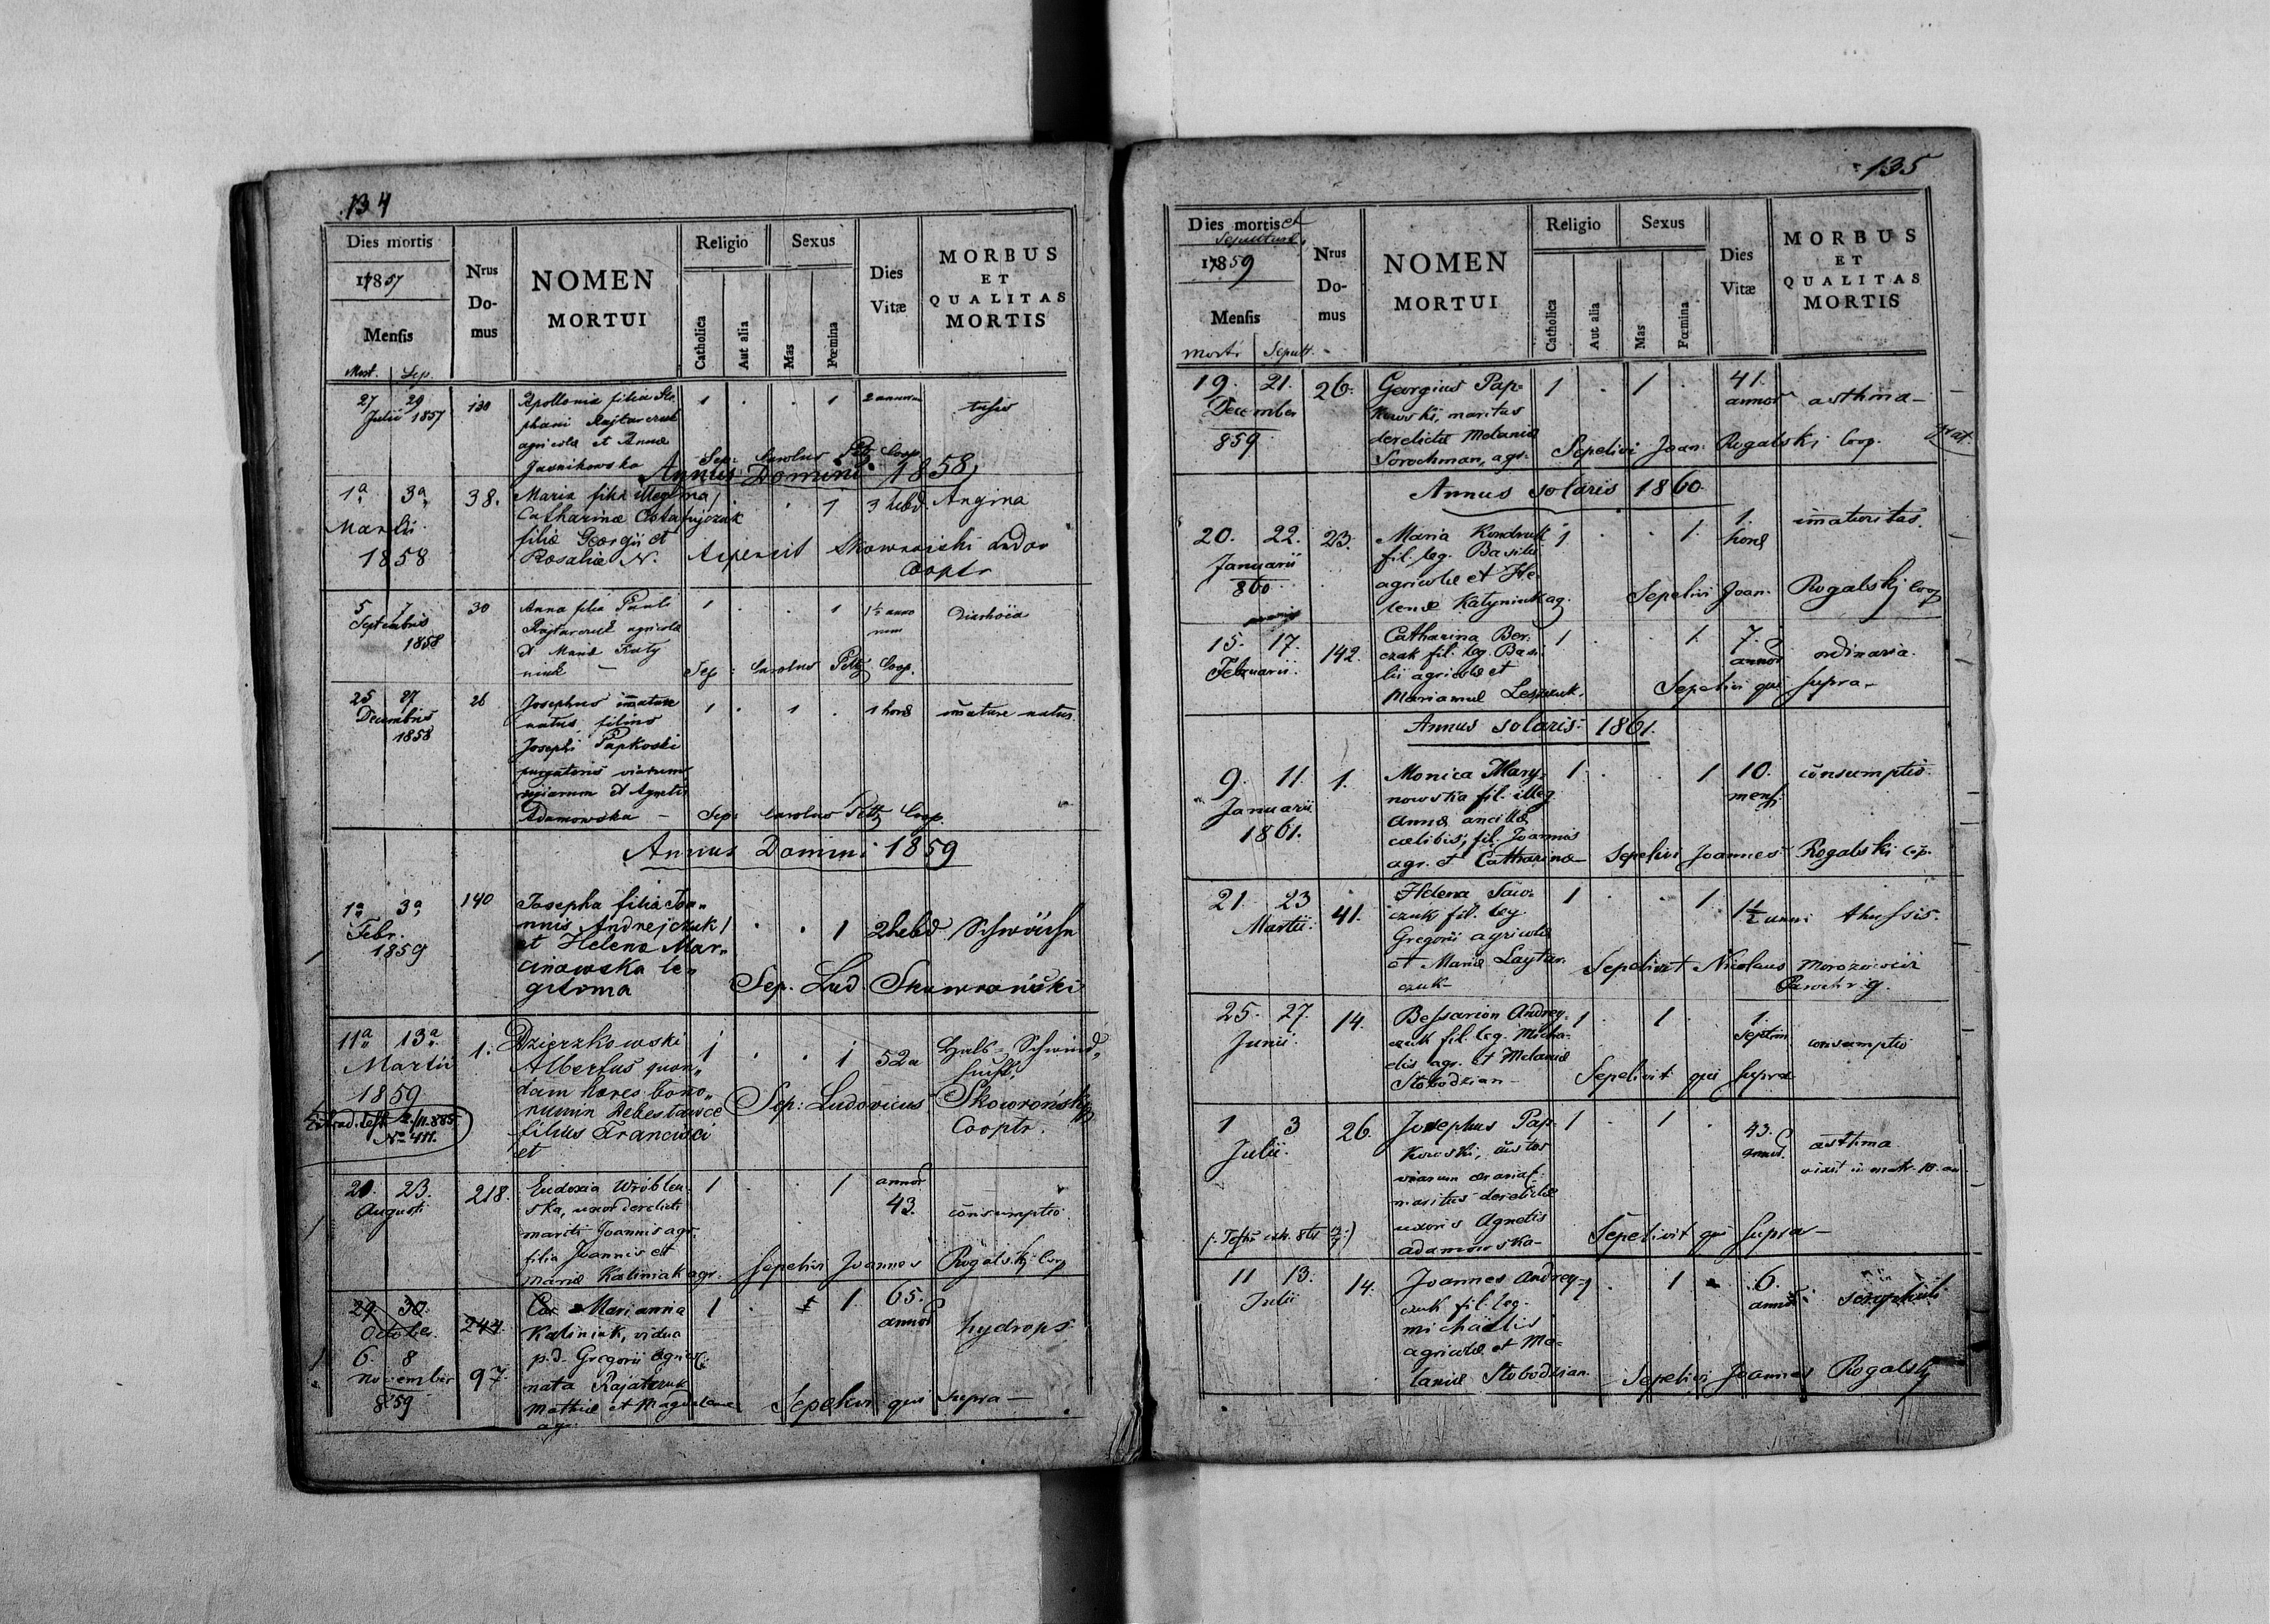 134
Dies mortis
1857
Mensis
Mort. Sep.
Nrus Do-mus
NOMEN
MORTUI
Religio
Catholica
Aut alia
Sexus
Mas
Fœmina
Dies
Vitæ
MORBUS
ET
QUALITAS
MORTIS
27 29
Julii 1857
130
Apollonia filia Ste
phani Rajtarczuk
agricolæ et Annæ
Jasnikowska
1 . . 1
2 annorum
tussis
Sep: Carolus Petz Coop.
Annus Domini 1858
1a 3a
Martii
1858
38.
Maria filia illegitma
Catharinæ Ostafijczuk
filiæ Georgii et
Rosaliæ N.
1 . . 1
3 hebd.
Angina
Aspersit Skowroński Ludov
Cooptr
5 7
Septembris
1858
30
Anna filia Pauli
Rajtarczuk agricolæ
et Mariæ Katy
niuk —
1 . . 1
1½ anno
rum
Diarhoia
Sep: Carolus Petz Coop.
25 27
Decembris
1858
26
Josephus immature
natus, filius
Josephi Papkoski
purgatoris viarum
regiarum et Agnetis
Adamowska —
1 . 1 .
1 horæ
immature natus
Sep: Carolus Petz Coop.
Annus Domini 1859
1a 3a
Febr.
1859
140
Josepha filia Joa„
nnis Andrejczuk
et Helena Mar„
cinowska le„
gitima
1 . . 1
2 hebd
Schwäche
Sep. Lud. Skowroński
11a 13a
Martii
1859
1.
Dzierzkowski
Albertus quon„
dam hæres bono„
rum
filius Francisci
et
1 . . 1
52 a
Hals-Schwind„
sucht.
Sep: Ludovicus Skowroński
Cooptr.
No 411.
21. 23.
Augusti
218.
Eudoxia Wróblew
ska, uxor derelicti
mariti Joannis agr.
filia Joannis et
Mariæ Kaliniak agr.
1 . 1
annor
43.
consumptio
Sepelivi Joannes Rogalski Coop
29. 30.
October
244.
6. 8
November
859
97.
Marianna
Kaliniak, vidua
p.d. Gregorii agricol.
nata Rajtarczuk
Mathiæ et Magdalenæ
agr.
1 . 1
65.
annor
hydrops
Sepelivi qui supra —
135
Dies mortis et
Sepulturæ
1859
Mensis
mortis Sepult.
Nrus Do-mus
NOMEN
MORTUI
Religio
Catholica
Aut alia
Sexus
Mas
Fœmina
Dies
Vitæ
MORBUS
ET
QUALITAS
MORTIS
19. 21.
December
859
26.
Georgius Pap-
kowski, maritus
derelictæ Melaniæ
Sorochman, agr.
1 . 1 .
41.
annor
asthma —
Sepelivi Joan. Rogalski Coop.
Annus solaris 1860
20. 22.
Januarii
860
23.
Maria Kondruk
fil. leg. Basilii
agricolæ et He-
lenæ Katyniuk ag.
1 . . 1
1.
horæ
immaturitas.
Sepelivi Joan. Rogalski Coop
15. 17.
Februarii.
142.
Catharina Ber-
czak fil. leg. Basi
lii agricolæ et
Mariannæ Leszczuk.
1 . . 1
7.
annor
ordinaria.
Sepelivi qui supra —
Annus solaris 1861.
9. 11.
Januarii
1861.
1.
Monica Mary-
nowska fil. illeg.
Annæ ancillæ
cælibis, fil. Joannis
agr. et Catharinæ —
1 . . 1
10.
mens.
consumptio
Sepelivi Joannes Rogalski Cop.
21. 23
Martii
41.
Helena Saw-
czuk fil. leg.
Gregorii agricolæ
et Mariæ Laytar-
czuk —
1 . . 1
1½ anni
thussis.
Sepelivit Nicolaus Morozowicz
Paroch r. g.
25. 27.
Junii.
14.
Bessarion Andrey-
czuk fil. leg. Micha-
elis agr. et Melaniæ
Slobodzian —
1 . 1
1.
septim
consumptio
Sepelivit qui supra
1 3
Julii.
26.
Josephus Pap-
kowski, custos
viarum
maritus derelictæ
uxoris Agnetis
Adamowska —
1 . 1 .
43.
annor.
asthma
Sepelivit qui supra —
11 13.
Julii
14.
Joannes Andrey-
czuk fil. leg.
Michaelis
agricolæ et Me-
laniæ Slobodzian.
1 . 1
6.
annor.
Sepelivi Joannes Rogalski